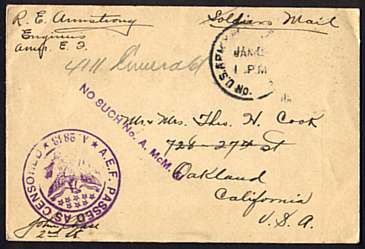 R. E. Armstrong
Engineers
Amer. E. F.
Soldiers Mail
411 Emerald
U.S. ARMY
JAN
1 PM
NO SUCH No. A. McM.
Mr & Mrs. Thos. H. Cook
728-27th St
Oakland
California
U.S.A.
A.E.F. PASSED AS CENSORED
John
2nd Lt